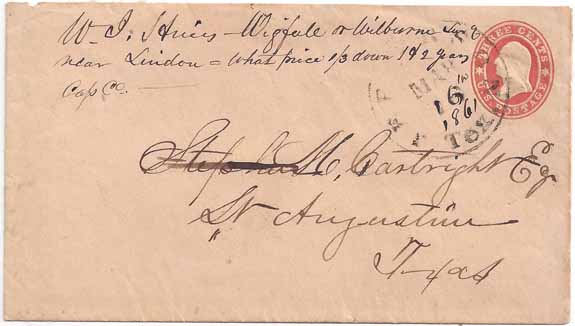 W. J. Hines - Wigfall or Wilburne Sur
near Lindon = What price 1/3 down 1 & 2 years
Cass Co.
THREE CENTS
U.S. POSTAGE
16
1861
Tex
Stephen H. Cartright Esq
St Augustine
Texas